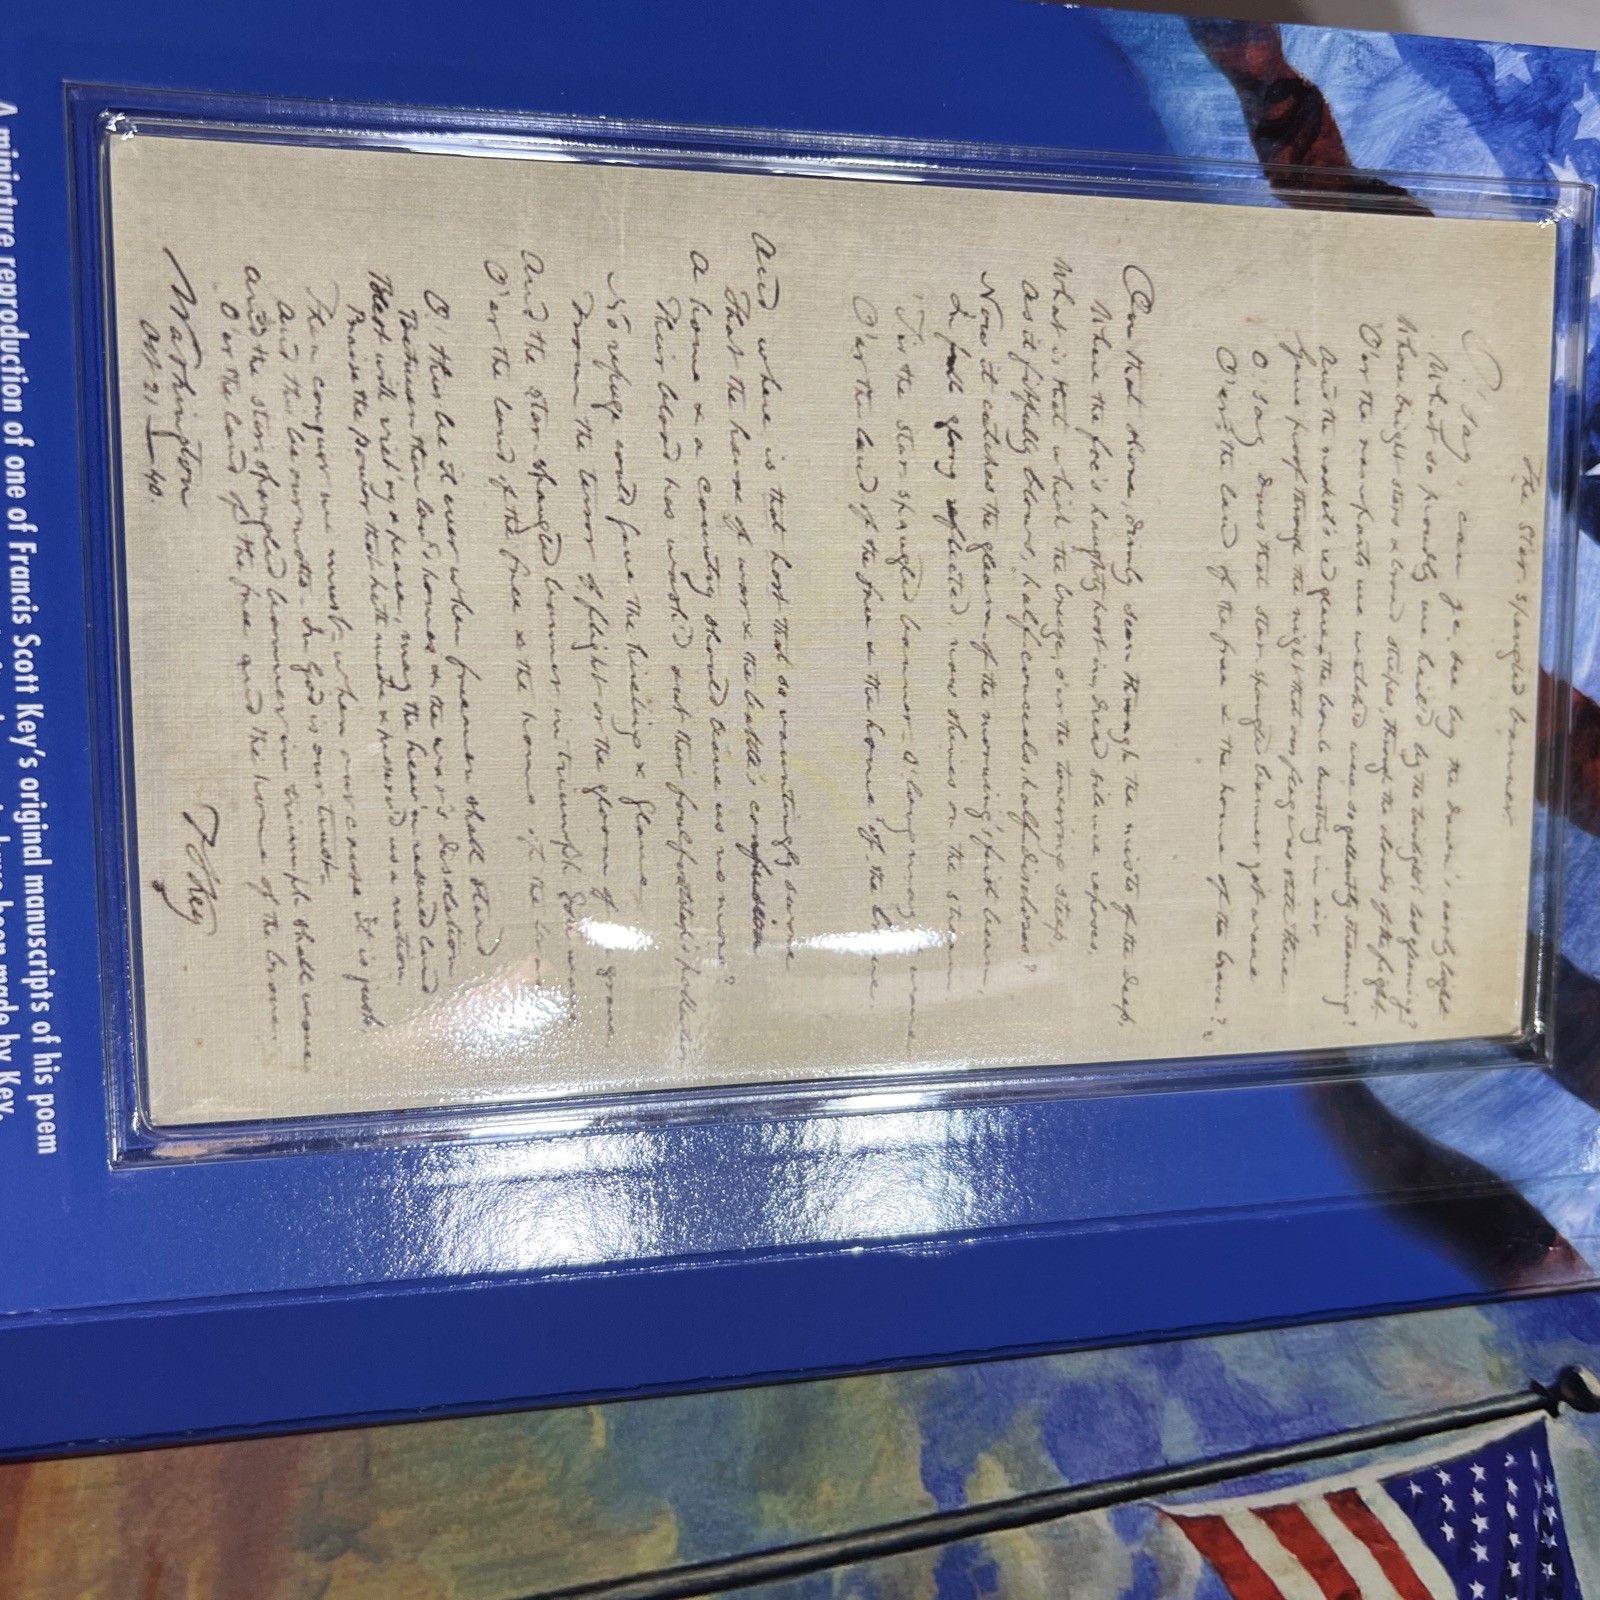 The Star-spangled banner.
O! say, can ye see by the dawn's early light
What so proudly we hail'd by the twilight's last gleaming?
Whose bright stars & broad stripes, through the clouds of the fight
O'er the ramparts we watched were so gallantly streaming?
And the rocket's red glare the bomb bursting in air
Gave proof through the night that our flag was still there
O! say, does that star-spangled banner yet wave
O'er the land of the free & the home of the brave?
On that shore, dimly seen through the mists of the deep,
Where the foe's haughty host in dread silence reposes,
What is that which the breeze, o'er the towering steep,
As it fitfully blows, half conceals, half discloses?
Now it catches the gleam of the morning's first beam,
In full glory reflected, now shines on the stream
'Tis the star-spangled banner - O! long may wave
O'er the land of the free & the home of the
And where is that host that so vauntingly swore
That the havoc of war & the battle's confusion
A home & a country should leave us no more?
Their blood has wash'd out their foul footstep's pollution
No refuge could save the hireling & slave
From the terror of flight or the gloom of grave
And the star-spangled banner in triumph
O'er the land of the free & the home of the
O! thus be it ever when freemen shall stand
Between their lov'd homes & the war's desolation
Blest with vict'ry & peace, may the heav'n rescued land
Praise the power that hath made & preserv'd us a nation
Then conquer we must - when our cause it is just
And this be our motto - In God is our trust -
And the star-spangled banner in triumph shall wave
O'er the land of the free and the home of the brave.
Washington
Oct 21 - 40.
F S Key
A miniature reproduction of one of Francis Scott Key's original manuscripts of his poem
been made by Key,